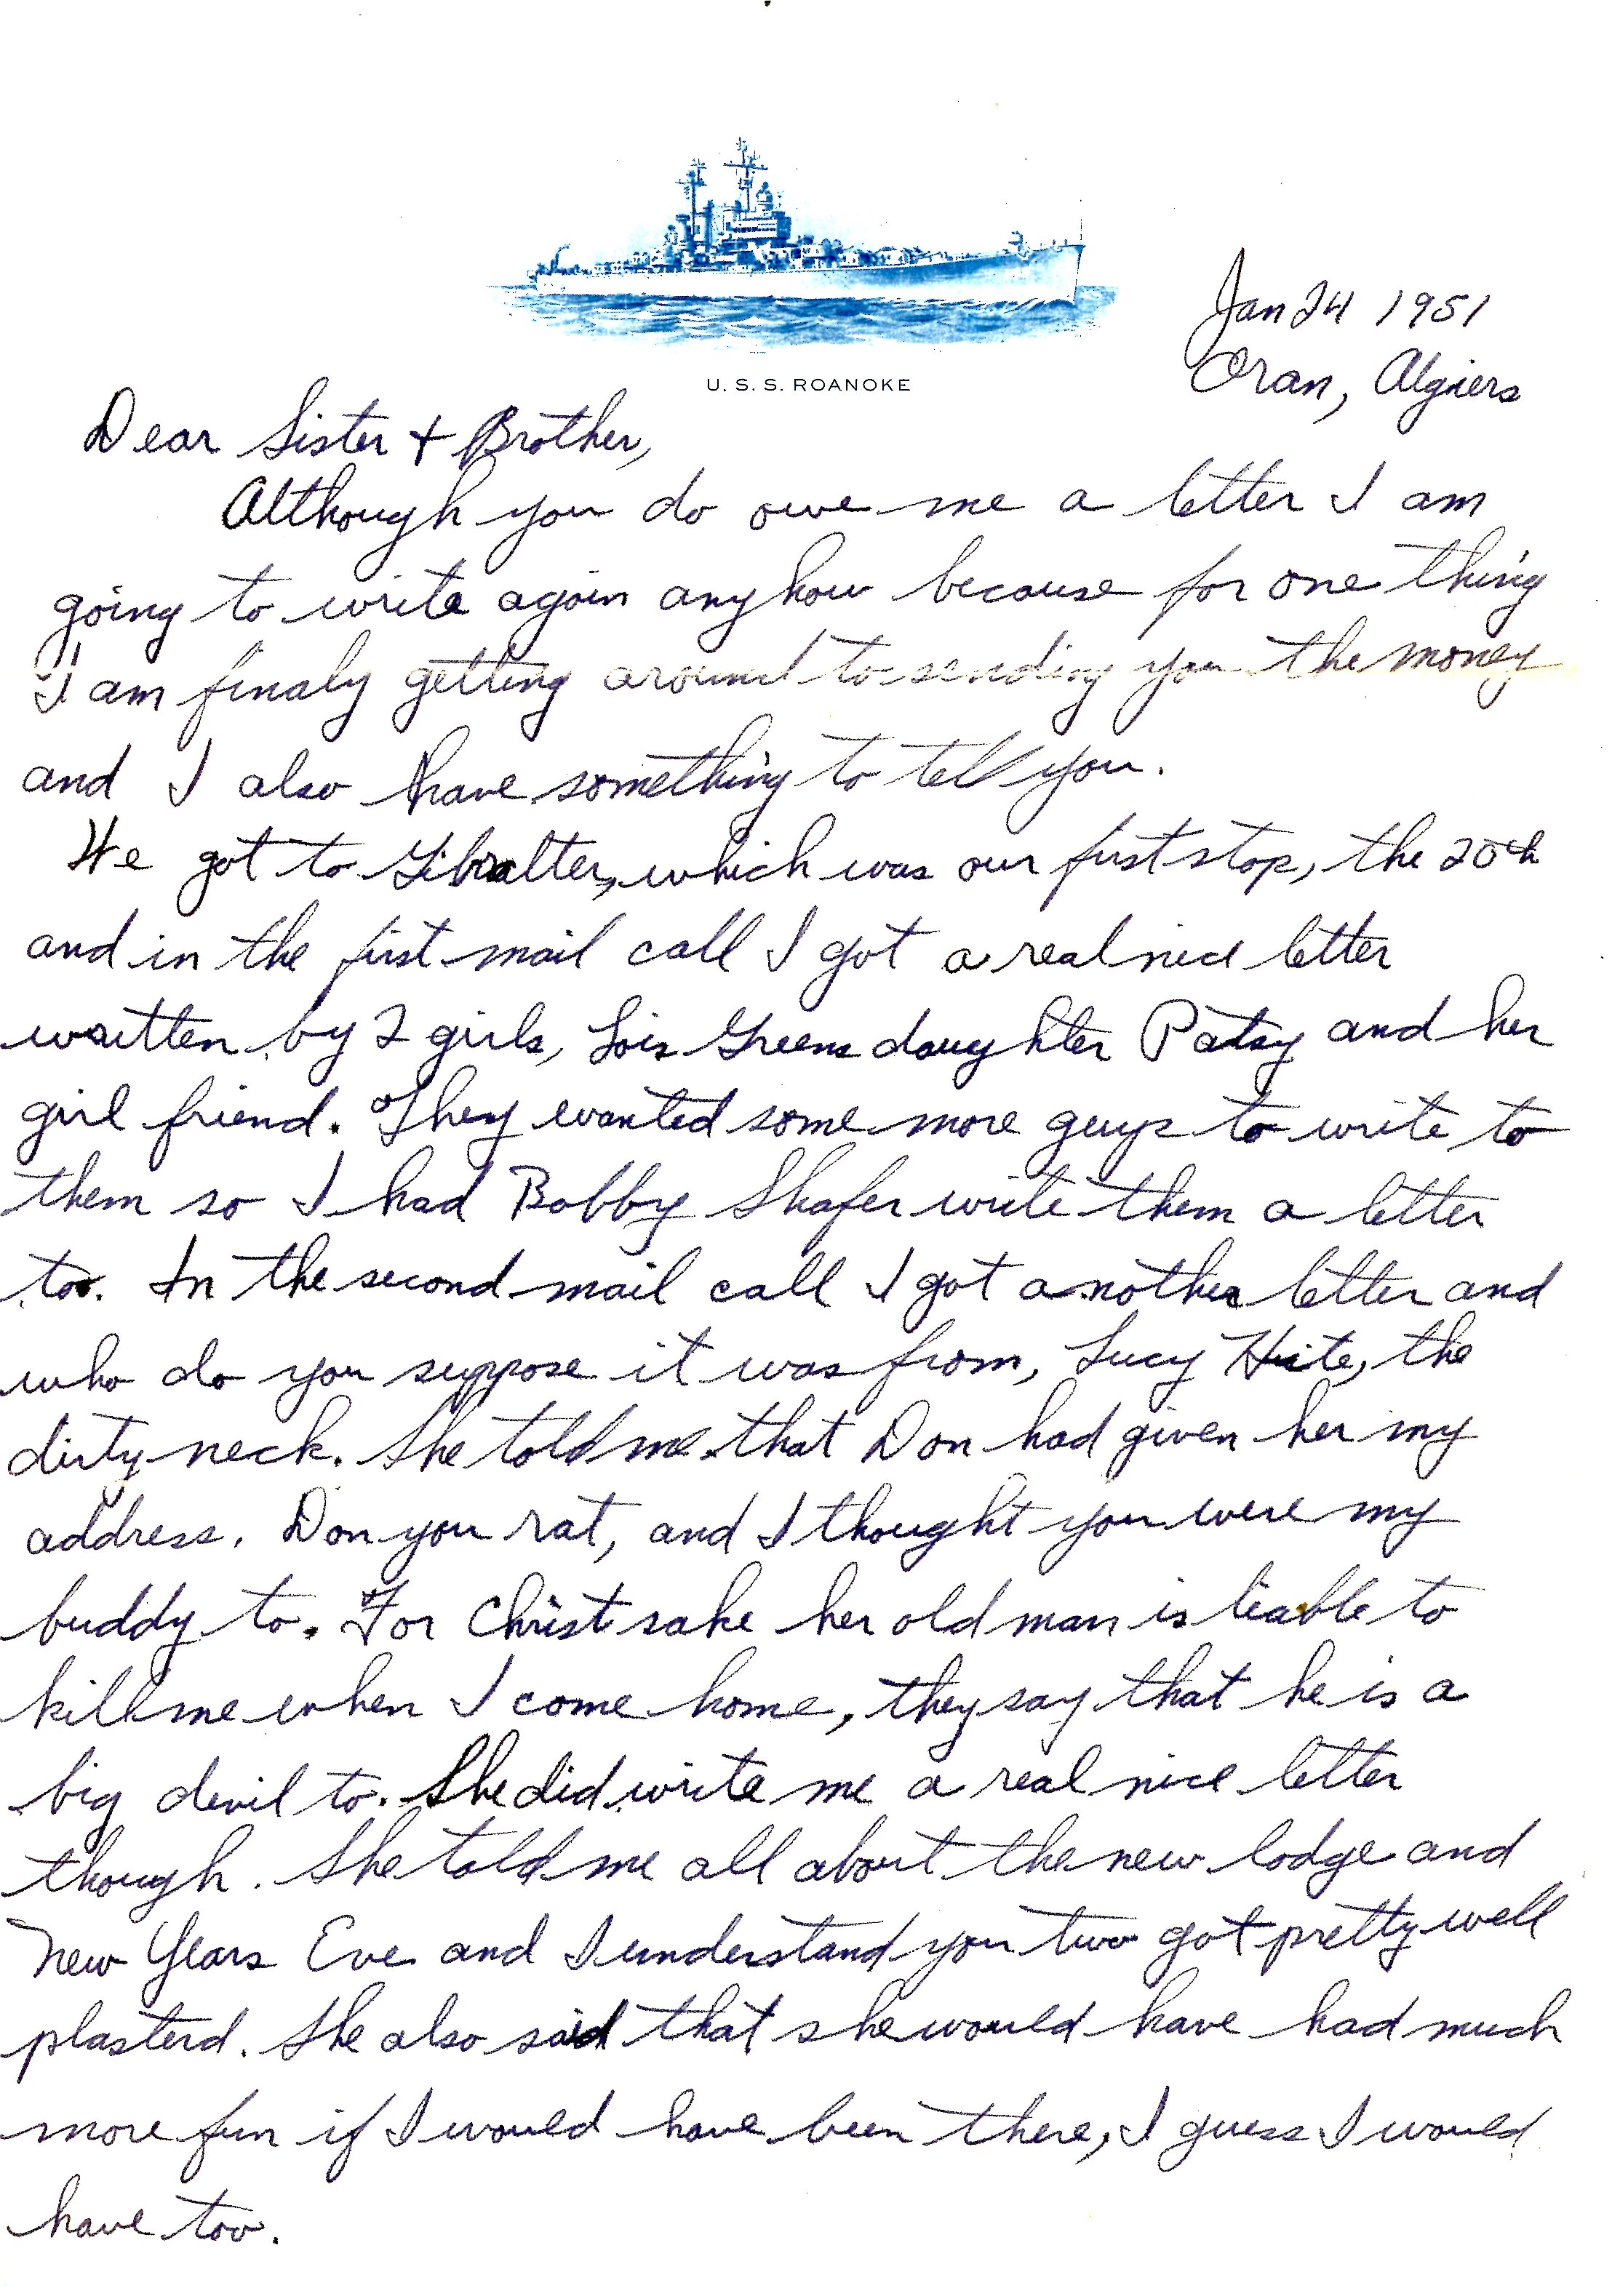 Jan 24 1951
U. S. S. ROANOKE
Oran, Algiers
Dear Sister + Brother,
Although you do owe me a letter I am
going to write again anyhow because for one thing
I am finaly getting around to sending you the money
and I also have something to tell you.
We got to Gibralter, which was our first stop, the 20th
and in the first mail call I got a real nice letter
written by 2 girls, Lois Greens daughter Patsy and her
girl friend. They wanted some more guys to write to
them so I had Bobby Shafer write them a letter
too. In the second mail call I got another letter and
who do you suppose it was from, Lucy Hite, the
dirty neck. She told me that Don had given her my
address. Don you rat, and I thought you were my
buddy to. For Christ sake her old man is liable to
kill me when I come home, they say that he is a
big devil to. She did write me a real nice letter
though. She told me all about the new lodge and
New Years Eve and I understand you two got pretty well
plasterd. She also said that she would have had much
more fun if I would have been there, I guess I would
have too.